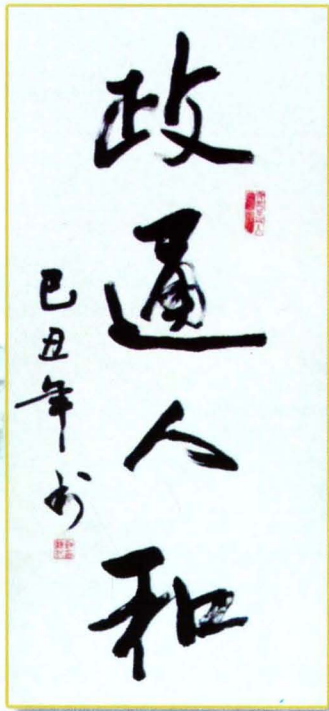 政通人和
己丑年书